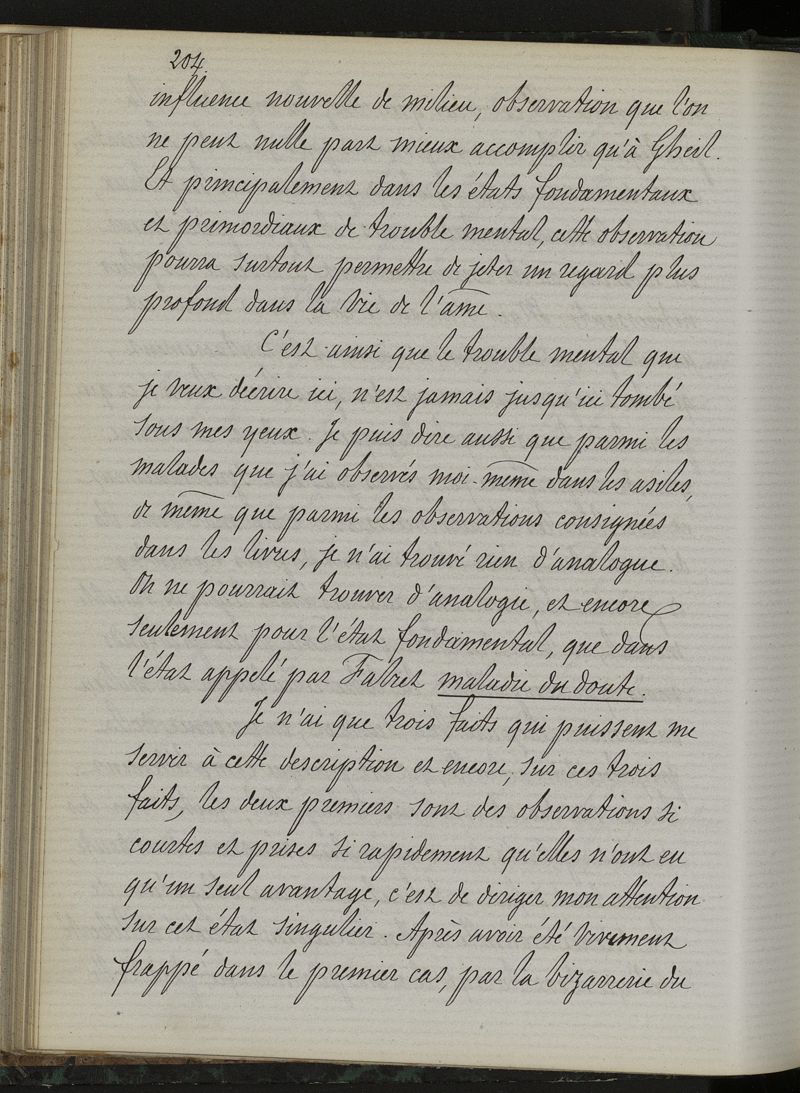 204
influence nouvelle de milieu, observation que l'on
ne peut nulle part mieux accomplir qu'à Gheel.
Et principalement dans les états fondamentaux
et primordiaux de trouble mental, cette observation
pourra surtout permettre de jeter un regard plus
profond dans la vie de l'âme.
C'est ainsi que le trouble mental que
je veux décrire ici, n'est jamais jusqu'ici tombé
sous mes yeux. Je puis dire aussi que parmi les
malades que j'ai observés moi-même dans les asiles,
de même que parmi les observations consignées
dans les livres, je n'ai trouvé rien d'analogue.
On ne pourrait trouver d'analogie, et encore
seulement pour l'état fondamental, que dans
l'état appelé par Falret maladie du doute.
Je n'ai que trois faits qui puissent me
servir à cette description et encore, sur ces trois
faits, les deux premiers sont des observations si
courtes et prises si rapidement qu'elles n'ont eu
qu'un seul avantage, c'est de diriger mon attention
sur cet état singulier. Après avoir été vivement
frappé dans le premier cas, par la bizarrerie du